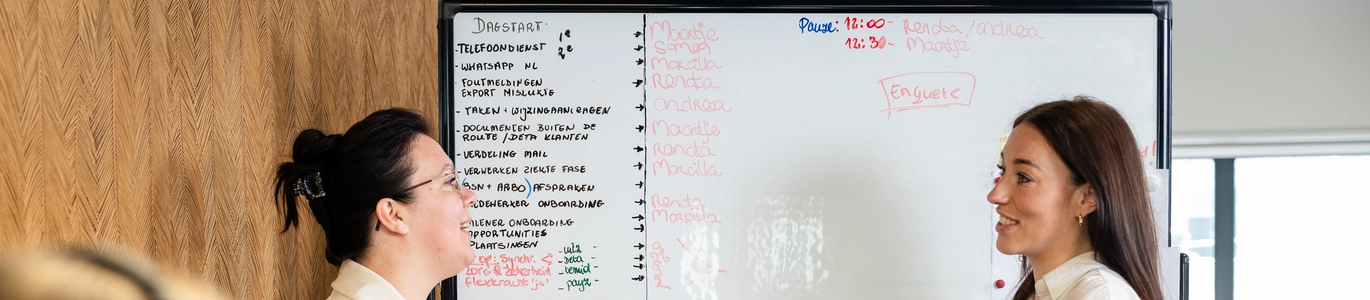 DAGSTART:
- TELEFOONDIENST 1e
2e
- WHATSAPP NL
FOUTMELDINGEN
EXPORT MISLUKTE
- TAKEN + WIJZINGAANVRAGEN
- DOCUMENTEN BUITEN DE
ROUTE / DETA KLANTEN
- VERDELING MAIL
- VERWERKEN ZIEKTE FASE
BSN + ARBO) AFSPRAKEN
ONBOARDING
ONBOARDING
OPPORTUNITIES
PLAATSINGEN
Zorg & Zekerheid
Flexkracht: 'ja'
- deta
- payz
Maartje
Samea
Marcilla
Rendra
andrea
Maartje
Rendra
Marcilla
Rendra
Marcilla
Pauze: 12:00 - Rendra / andrea
12:30 - Maartje
Enquete